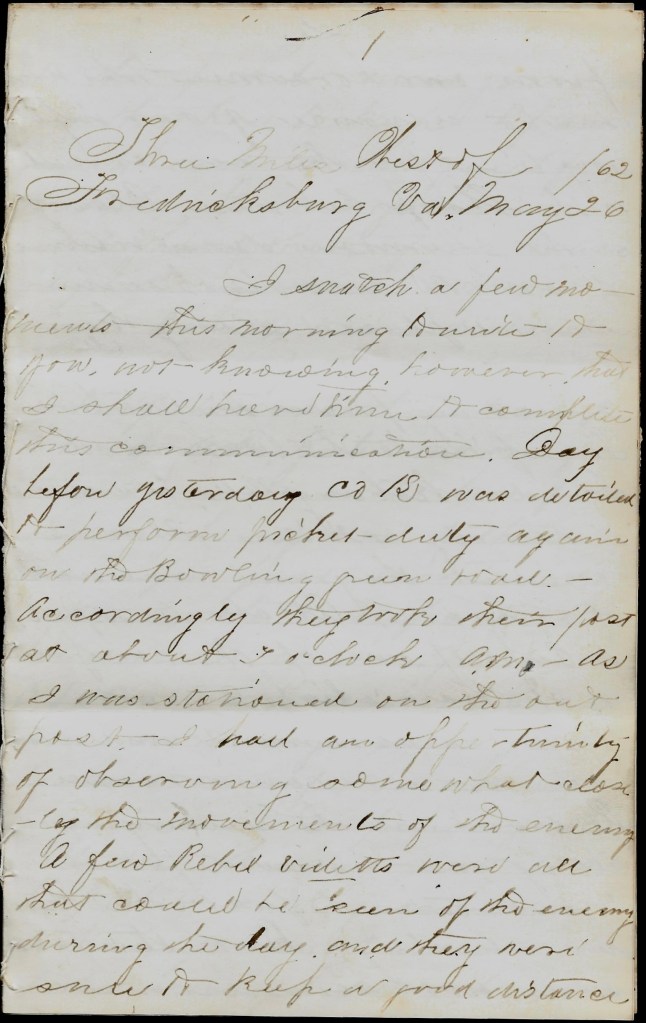 1
Three Miles West of /62
Fredricksburg Va. May 26
I snatch a few mo-
ments this morning to write to
you, not knowing, however, that
I shall have time to complete
this communication. Day
before yesterday Co B was detailed
to perform picket duty again
on the Bowling green road. -
Accordingly they took their post
at about o'clock A.M. - As
I was stationed on the out
post. I had an opportunity
of observing somewhat close
-ly the movements of the enemy
A few Rebel videtts were all
that could be seen of the enemy
during the day, and they were
sure to keep a good distance